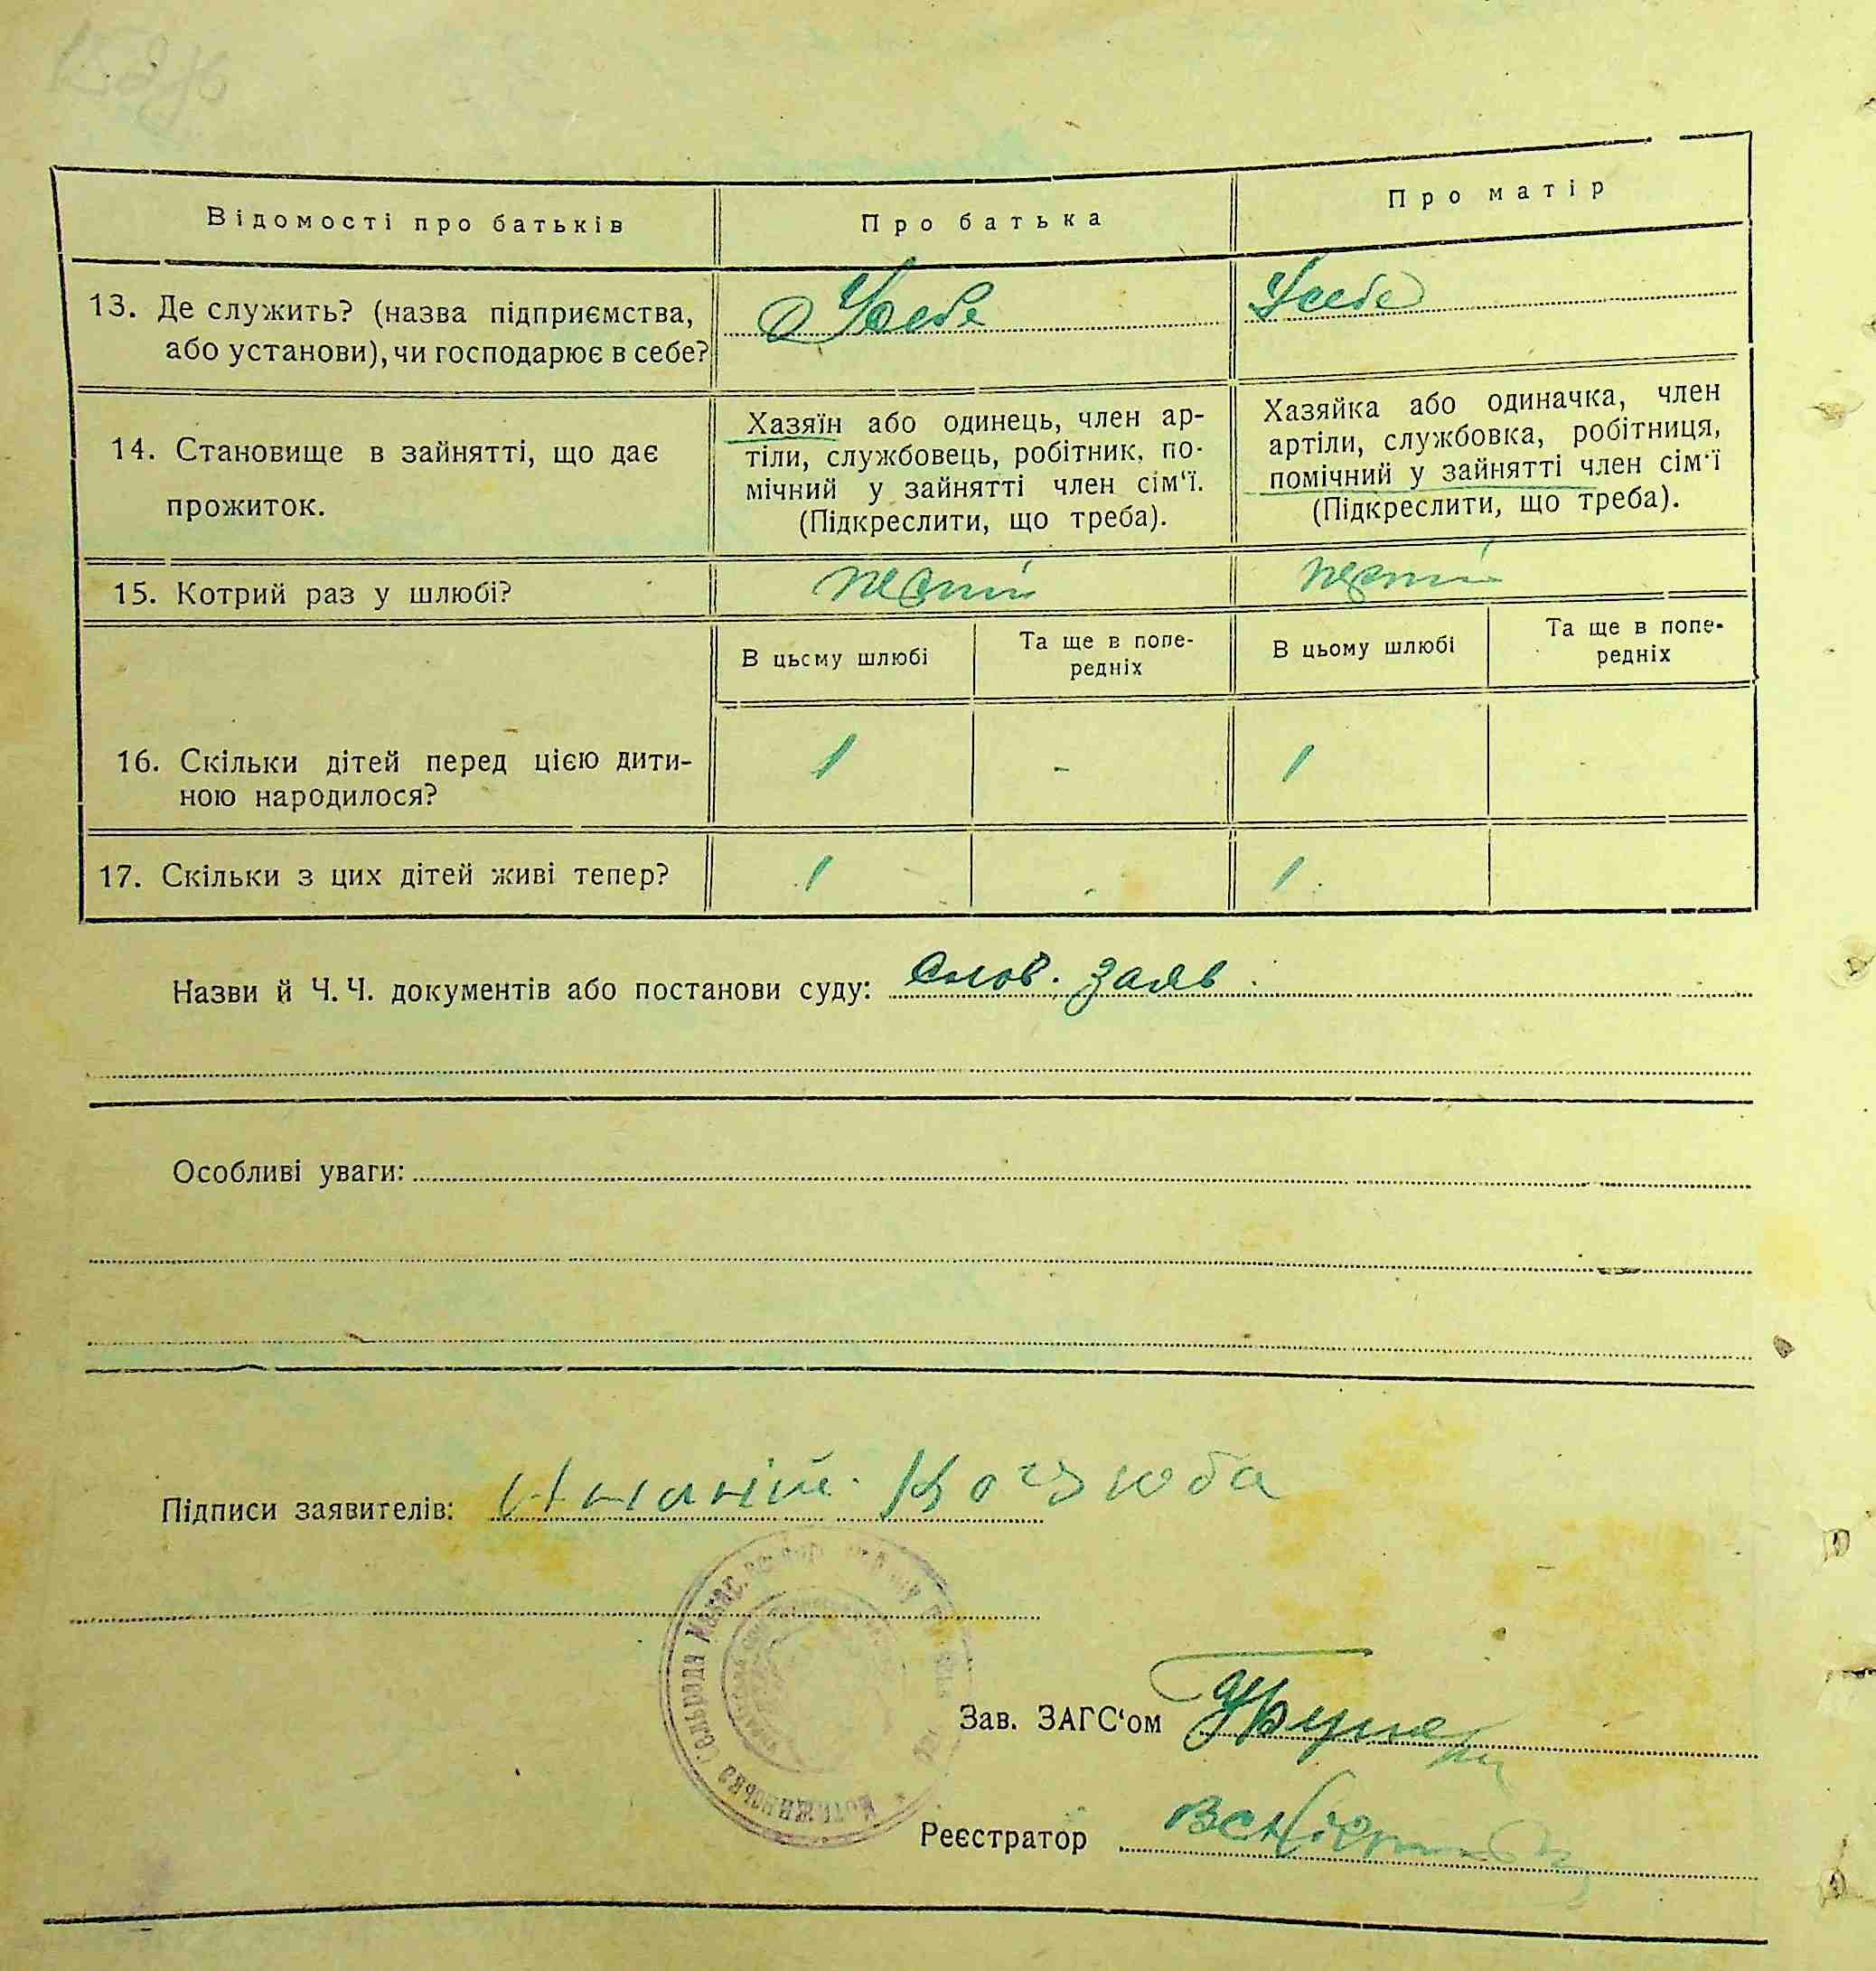 Відомості про батьків
Про батька
Про матір
13. Де служить? (назва підприємства,
або установи), чи господарює в себе?
Усебе
Усебе
14. Становище в зайнятті, що дає
прожиток.
Хазяїн або одинець, член ар-
тіли, службовець, робітник, по-
мічний у зайнятті член сім'ї.
(Підкреслити, що треба).
Хазяйка або одиначка, член
артіли, службовка, робітниця,
помічний у зайнятті член сім'ї
(Підкреслити, що треба).
15. Котрий раз у шлюбі?
В цьсму шлюбі
Та ще в попе-
редніх
В цьому шлюбі
Та ще в попе-
редніх
16. Скільки дітей перед цією дити-
ною народилося?
1 - 1
17. Скільки з цих дітей живі тепер?
1 - 1
Назви й Ч. Ч. документів або постанови суду: Слов. заяв.
Особливі уваги:
Підписи заявителів: Кочзюба
Зав. ЗАГС'ом
Реєстратор